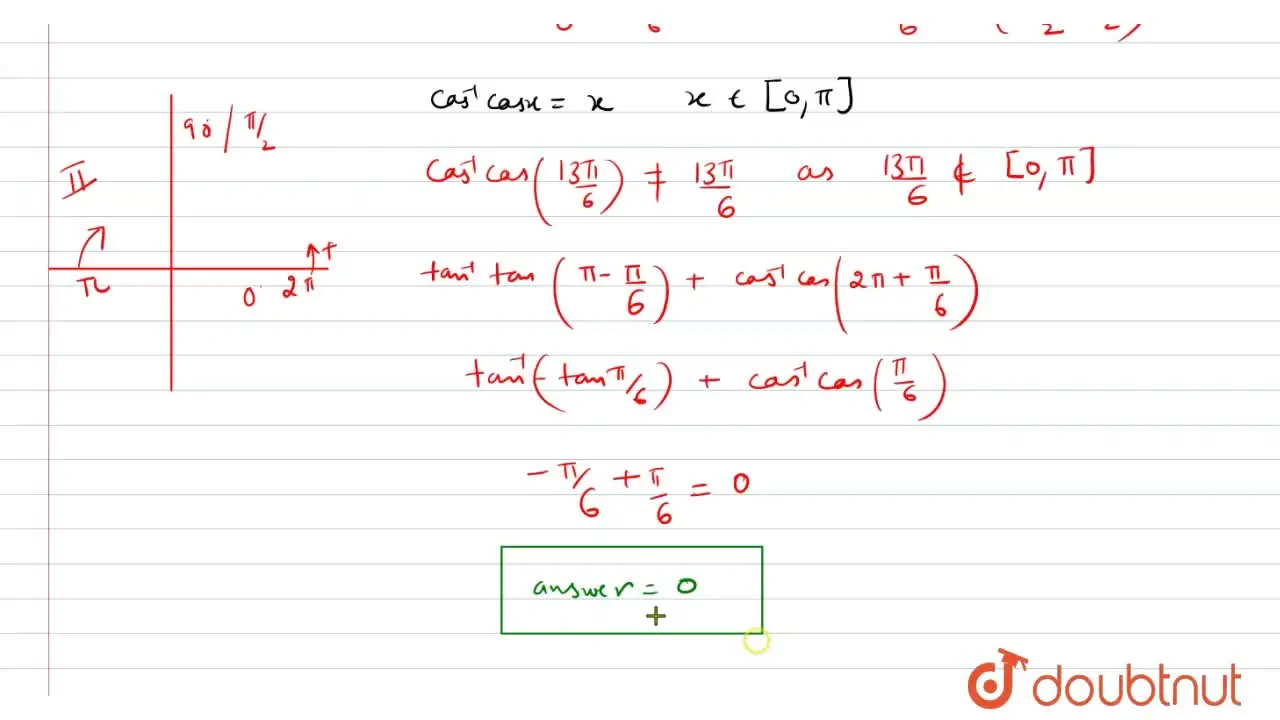 cos⁻¹ cosx = x    x ∈ [0, π]
90 / π/2
II
cos⁻¹ cos(13π/6) ≠ 13π/6 as 13π/6 ∉ [0, π]
+
π
0 2π
tan⁻¹ tan (π - π/6) + cos⁻¹ cos(2π + π/6)
tan⁻¹(- tan π/6) + cos⁻¹ cos(π/6)
- π/6 + π/6 = 0
answer = 0
doubtnut